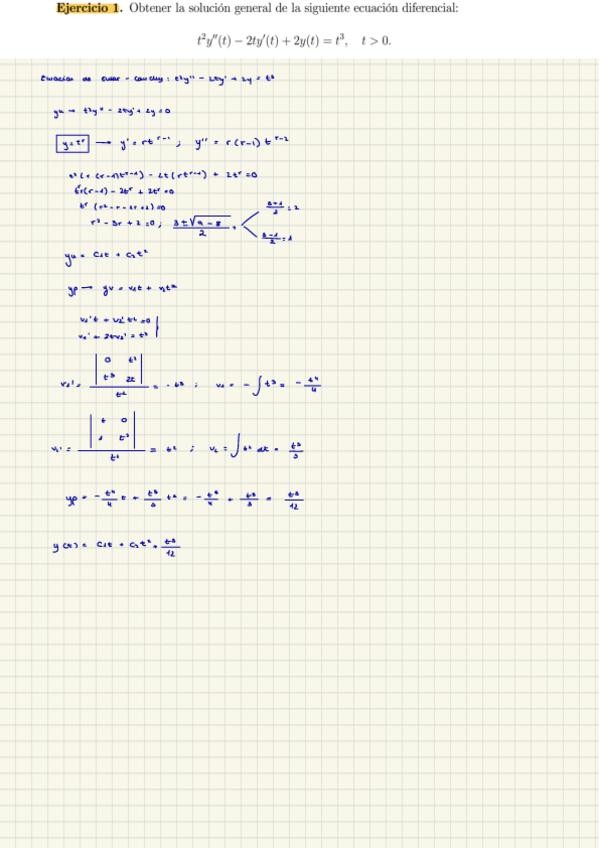 Ejercicio 1. Obtener la solución general de la siguiente ecuación diferencial:
t²y''(t) − 2ty'(t) + 2y(t) = t³, t > 0.
Ecuación de Euler - Cauchy: t²y'' - 2ty' + 2y = t³
yH → t²y'' - 2ty' + 2y = 0
y = tʳ → y' = r tʳ⁻¹ ; y'' = r(r-1) tʳ⁻²
- 2t(r tʳ⁻¹) + 2tʳ = 0
tʳ(r² - r - 2r + 2) = 0
r² - 3r + 2 = 0 ; (3 ± √(9 - 8))/2 = < (3+1)/2 = 2
(3-1)/2 = 1
yH = C₁t + C₂t²
yp → yp = v₁t + v₂t²
v₁'t + v₂'t² = 0
v₁' + 2tv₂' = t³
v₁' = |0 t² ; t³ 2t| / t² = -t³ ; v₁ = -∫t³ = -t⁴/4
= |t 0 ; 1 t³| / t² = t² ; v₂ = ∫t² dt = t³/3
yp = -t⁴/4 t + t³/3 t² = -t⁵/4 + t⁵/3 = t⁵/12
y(t) = C₁t + C₂t² + t⁵/12